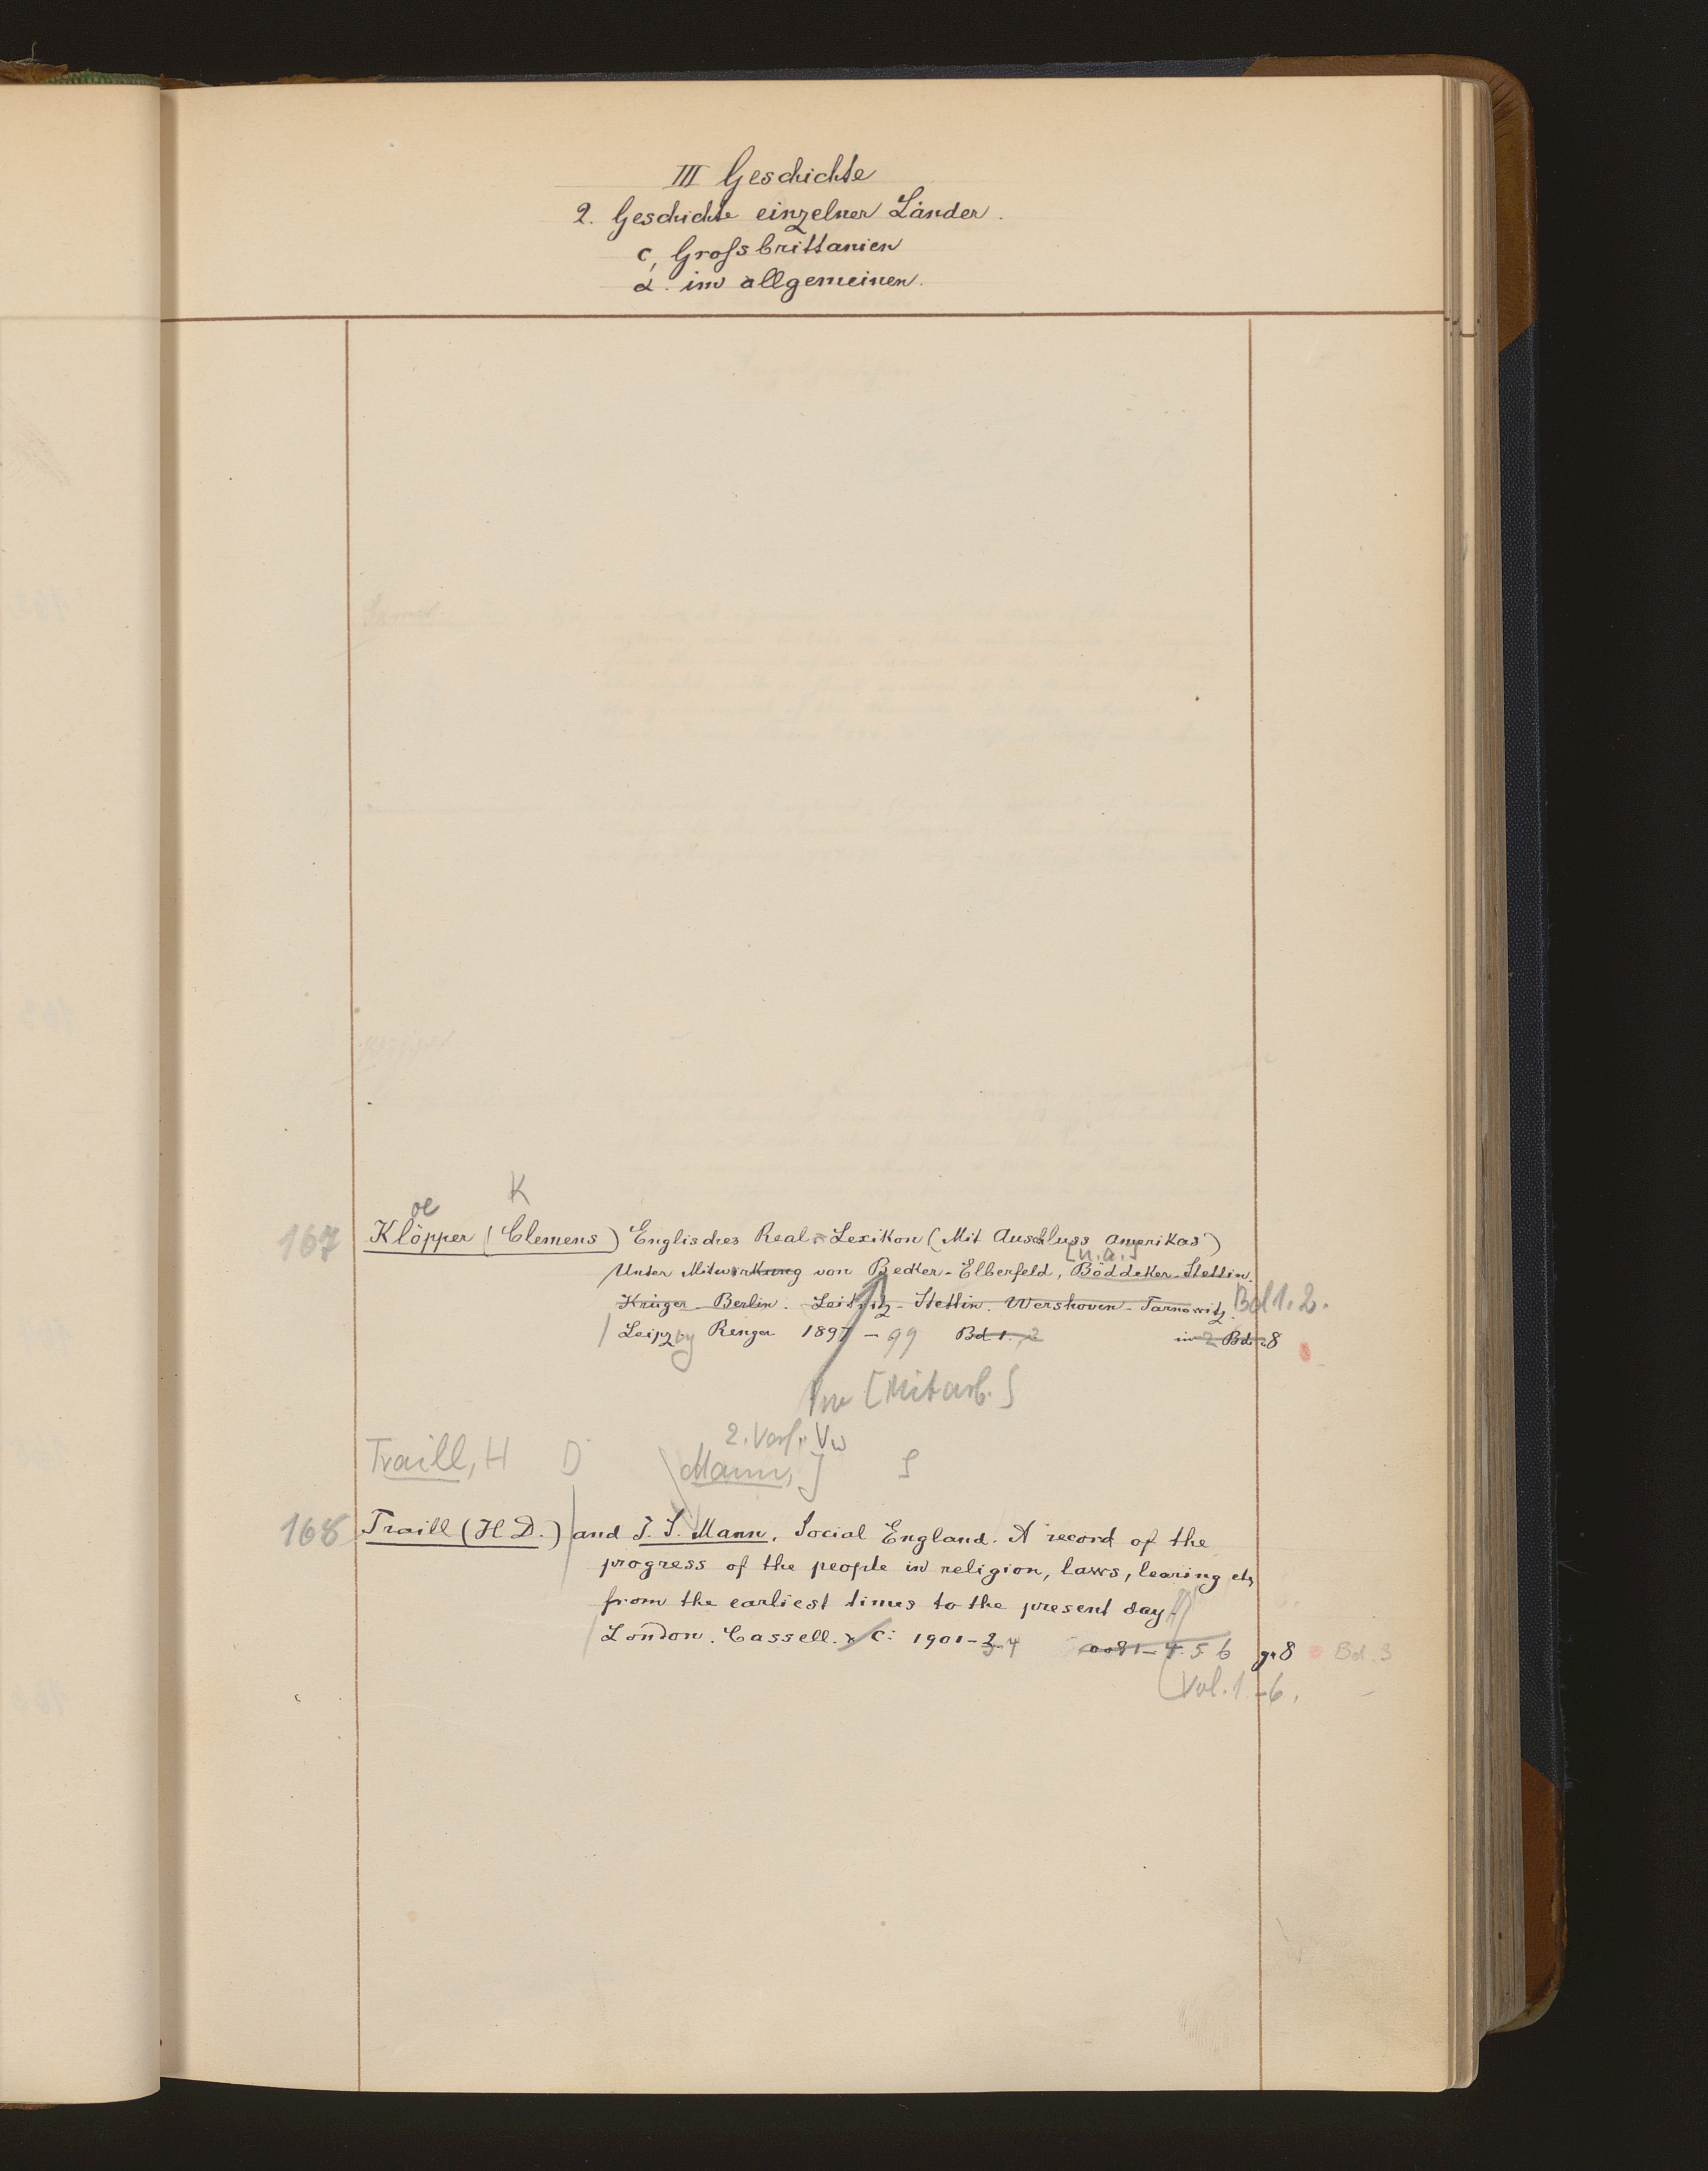 III Geschichte
2. Geschichte einzelner Länder.
c, Grossbrittanien
α. im allgemeinen.
oe K
167 Klöpper (Clemens) Englisches Real-Lexikon (Mit Auschluss Amerikas)
[u.a.]
Unter Mitwirkung von Becker-Elberfeld, Böddeker-Stettin.
Krüger-Berlin. Leitritz-Stettin. Wershoven-Tarnowitz. Bd 1.2.
Leipzig Renger 1897-99 Bd 1. 2 in 2 Bd. 8
Vw [Mitarb.]
2. Verf. Vw
Traill, H D [Mann,] S
168 Traill (H. D.) and J. S. Mann. Social England. A record of the
progress of the people in religion, laws, learing etc
from the earliest times to the present day.
London. Cassell. & C: 1901- 4 1-4. 5. 6 gr 8 Bd. 3
(Vol. 1-6.